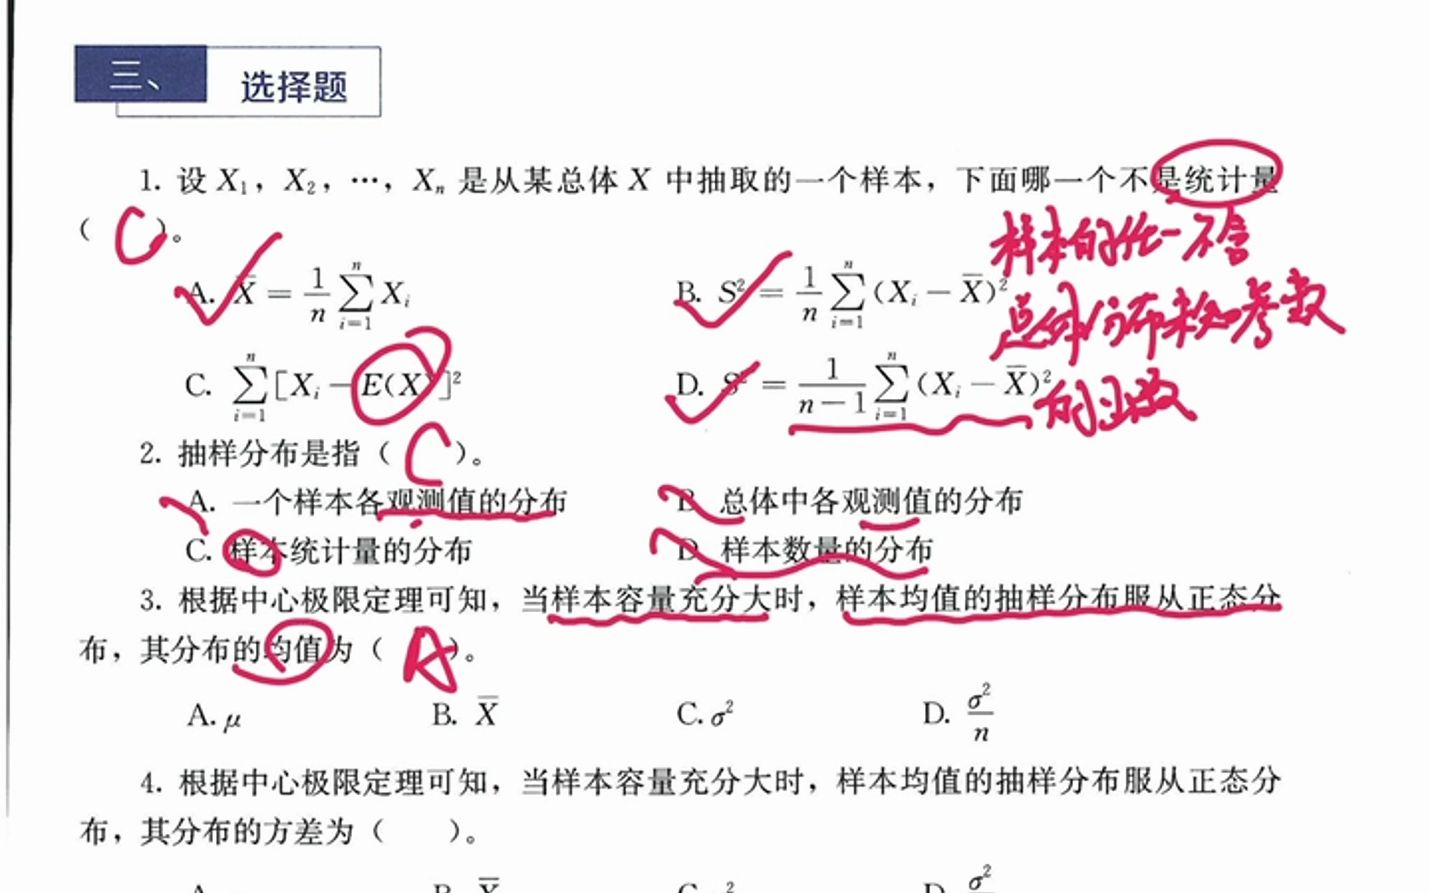 三、 选择题
1. 设 X₁, X₂, …, Xₙ 是从某总体 X 中抽取的一个样本，下面哪一个不是统计量
( C )。
样本的任一不含
A. X̄ = 1/n ∑ᵢ₌₁ⁿ Xᵢ B. S² = 1/n ∑ᵢ₌₁ⁿ (Xᵢ − X̄)²
总体分布未知参数
C. ∑ᵢ₌₁ⁿ [Xᵢ − E(X)]² D. S² = 1/(n−1) ∑ᵢ₌₁ⁿ (Xᵢ − X̄)²
的函数
2. 抽样分布是指 ( C )。
A. 一个样本各观测值的分布 B. 总体中各观测值的分布
C. 样本统计量的分布 D. 样本数量的分布
3. 根据中心极限定理可知，当样本容量充分大时，样本均值的抽样分布服从正态分
布，其分布的均值为 ( A )。
A. μ B. X̄ C. σ² D. σ²/n
4. 根据中心极限定理可知，当样本容量充分大时，样本均值的抽样分布服从正态分
布，其分布的方差为 ( )。